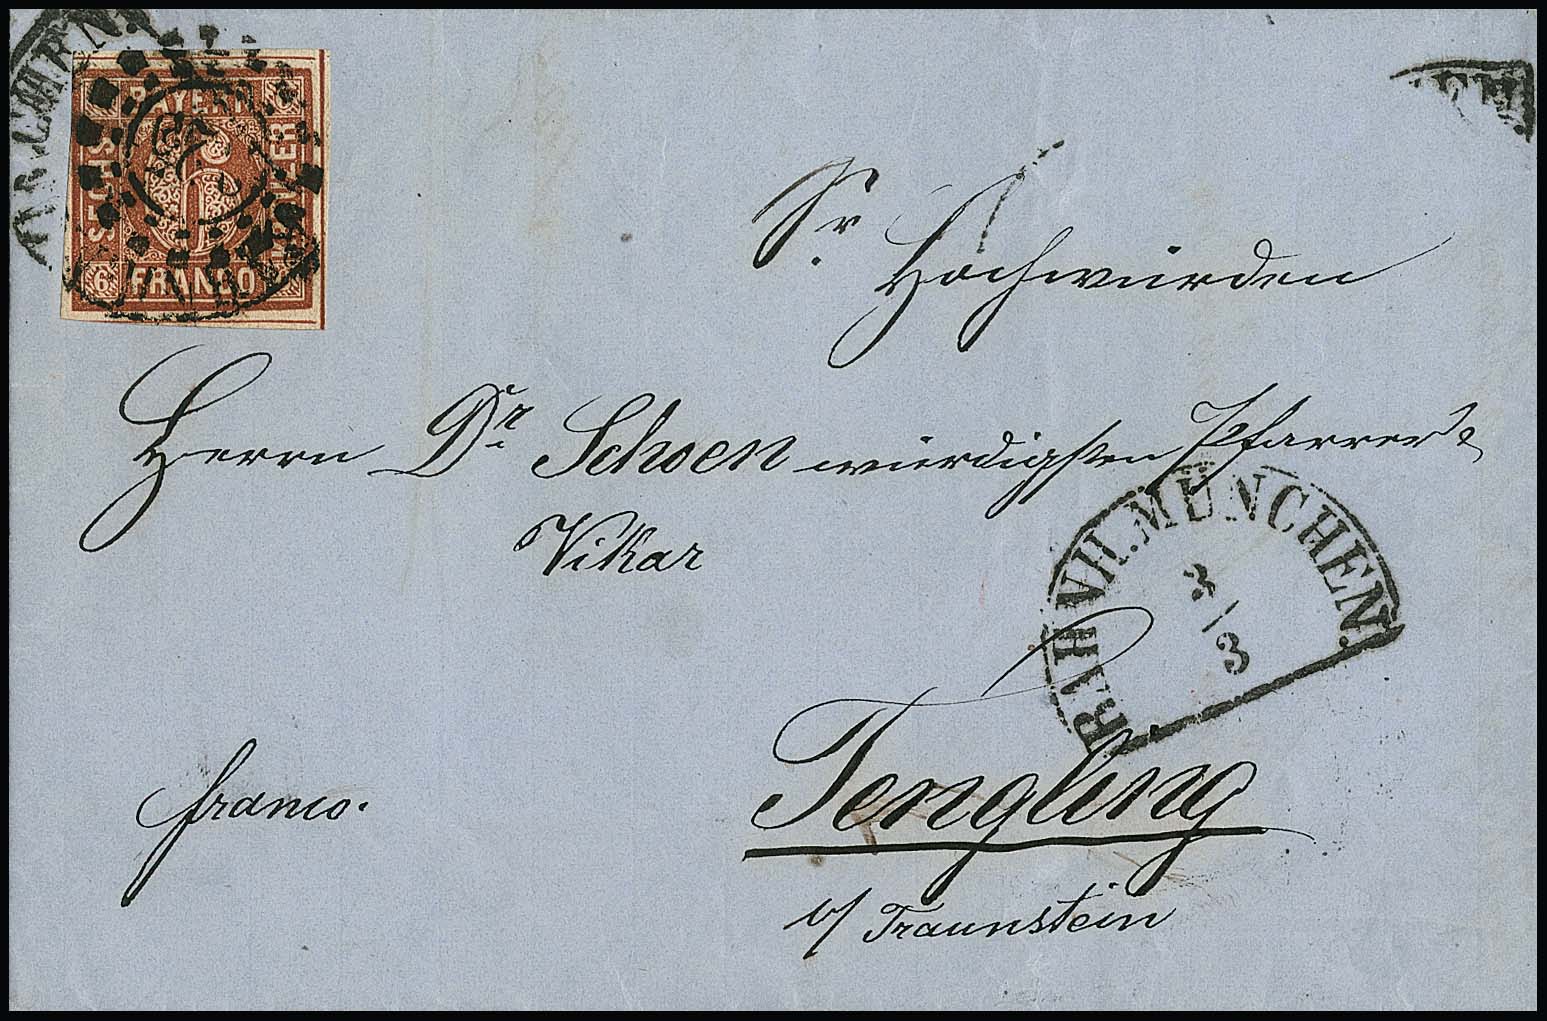 BAYERN
SECHS
KREUZER
FRANCO
6
Sr. Hochwürden
Herrn Dr Schoen würdigsten Pfarrer &
Vikar
BAHNH. MÜNCHEN.
3/3
franco.
Tengling
b/ Traunstein